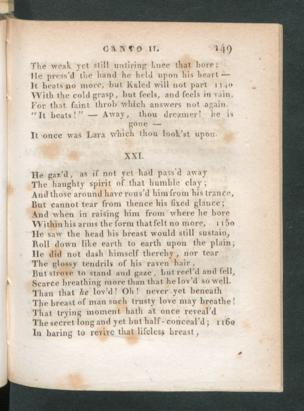 CANTO II. 149
The weak yet still untiring knee that bore;
He press'd the hand he held upon his heart —
It beats no more, but Kaled will not part 1140
With the cold grasp, but feels, and feels in vain.
For that faint throb which answers not again.
"It beats!" — Away, thou dreamer! he is
gone —
It once was Lara which thou look'st upon.
XXI.
He gaz'd, as if not yet had pass'd away
The haughty spirit of that humble clay;
And those around have rous'd him from his trance,
But cannot tear from thence his fixed glance;
And when in raising him from where he bore
Within his arms the form that felt no more, 1150
He saw the head his breast would still sustain,
Roll down like earth to earth upon the plain;
He did not dash himself thereby, nor tear
The glossy tendrils of his raven hair,
But strove to stand and gaze, but reel'd and fell,
Scarce breathing more than that he lov'd so well.
Than that he lov'd! Oh! never yet beneath
The breast of man such trusty love may breathe!
That trying moment hath at once reveal'd
The secret long and yet but half-conceal'd; 1160
In baring to revive that lifeless breast,